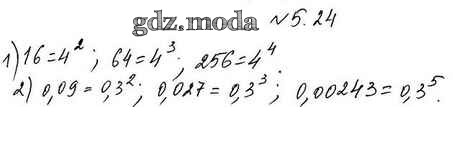 gdz.moda №5.24
1) 16=4²; 64=4³; 256=4⁴
2) 0,09=0,3²; 0,027=0,3³; 0,00243=0,3⁵.